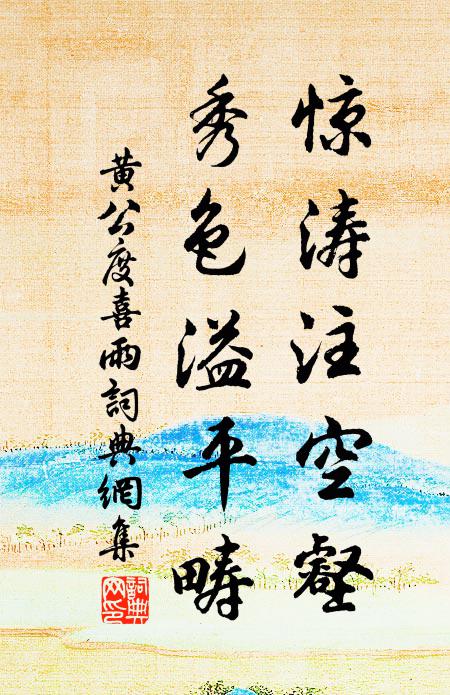 惊涛注空壑
秀色溢平畴
黄公度喜雨詞典網集
詞典